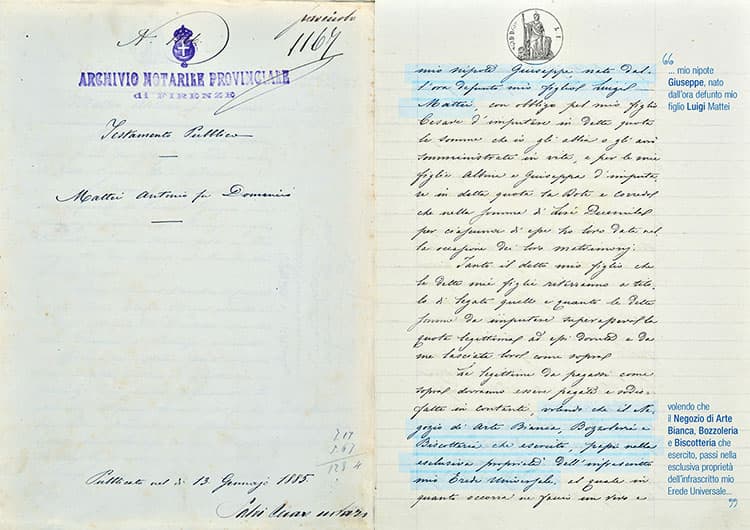 fascicolo
N.
1167
ARCHIVIO NOTARILE PROVINCIALE
di FIRENZE
Testamento Pubblico
Mattei Antonio fu Domenico
7.17
Pubblicato nel dì 13 Gennajo 1885
mio nipote Giuseppe, nato dal-
l'ora defunto mio figlio Luigi
Mattei, con obbligo pel mio figlio
Cesare d'imputare in detta quota
le somme che io gli abbia o gli avrò
somministrate in vita, e per le mie
figlie Albina e Giuseppa d'imputa-
re in detta quota la Dote e corredo
che nella somma di Lire Duemila
per ciascuna di esse ho loro dato nel-
la occasione dei loro matrimonj.
Tanto il detto mio figlio che
le dette mie figlie riterranno a tito-
lo di legato quello e quanto le dette
somme da imputare superassero la
quota legittima ad essi dovuta e da
me lasciata loro come sopra
Le legittime da pagarsi come
sopra dovranno essere pagate e sodis-
fatte in contante, volendo che il Ne-
gozio di Arte Bianca, Bozzoleria e
Biscotteria che esercito, passi nella
esclusiva proprietà dell'infrascritto
mio Erede Universale, il quale in
quanto occorra ne faccio un vero e
“
... mio nipote
Giuseppe, nato
dall'ora defunto mio
figlio Luigi Mattei
volendo che
il Negozio di Arte
Bianca, Bozzoleria
e Biscotteria che
esercito, passi nella
esclusiva proprietà
dell'infrascritto mio
Erede Universale...
”